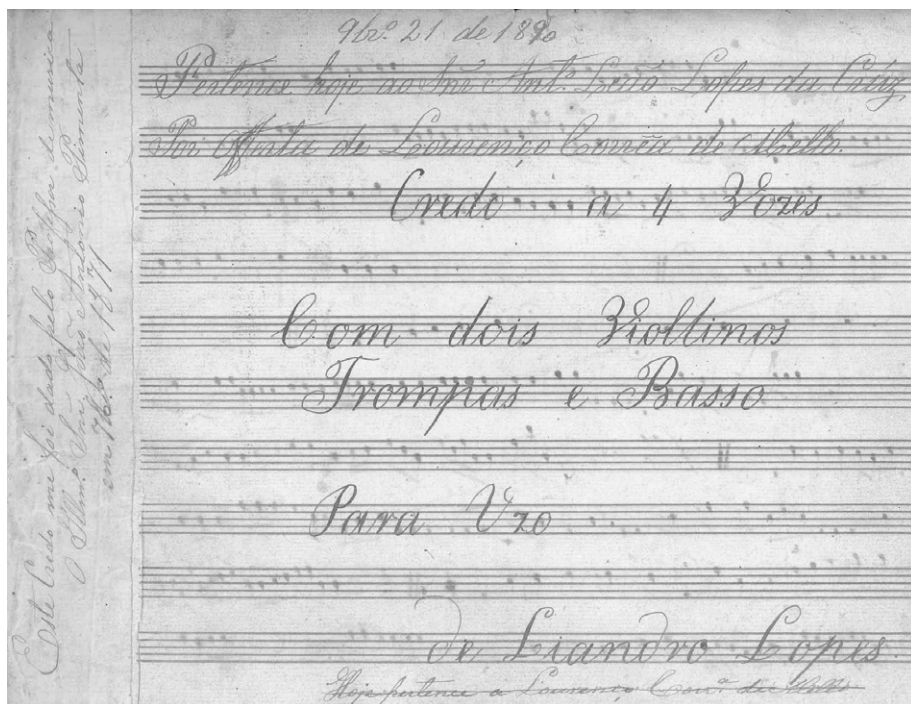 9br.o 21 de 1890
Pertence hoje ao Snr Ant.o Leão Lopes da Cruz
Por Offerta de Lourenço Corrêa de Mello.
Credo a 4 Vozes
Com dois Violtinos
Trompas e Basso
Para Uzo
de Liandro Lopes
Hoje pertence a Lourenço Corr.a de Mello
Este Credo me foi dado pelo Professor de musica
O Illm.o Snr. João Antonio Pimenta
em de 1877